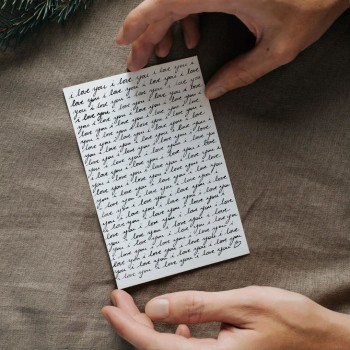 i love you i love you i love
you i love you i love you i
love you i love you i love
you i love you i love you i
love you i love you i love
you i love you i love you
i love you i love you i love
you i love you i love you
i love you i love you i love
you i love you i love you
i love you i love you i love
you i love you i love you i
love you i love you i love
you i love you i love you
i love you i love you i love
you i love you i love you i
love you i love you i love
you i love you i love you
i love you i love you